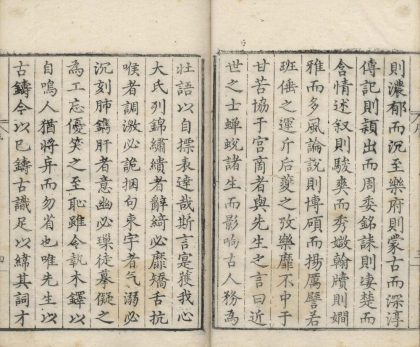 則濃郁而沉至樂府則蒙古而深淳
傳記則穎出而周委銘誄則悽楚而
含情述叙則駿爽而秀媺翰牘則嫺
雅而多風論說則博碩而揚厲譬若
班倕之運斤后夔之攷樂靡不中于
甘苦協于宮商者與先生之言曰近
世之士蟬蛻諸生而影响古人務為
壯語以自標表達哉斯言寔獲我心
大氏列錦繡繢者辭綺必靡矯舌抗
喉者調激必詭捆句束字者气溺必
沉刻肺鐫肝者意幽必璅徒摹儗之
為工忘優笑之至恥雖令執木鐸以
自鳴人猶將弃而勿省也唯先生以
古鑄今以巳鑄古識足以緯其詞才